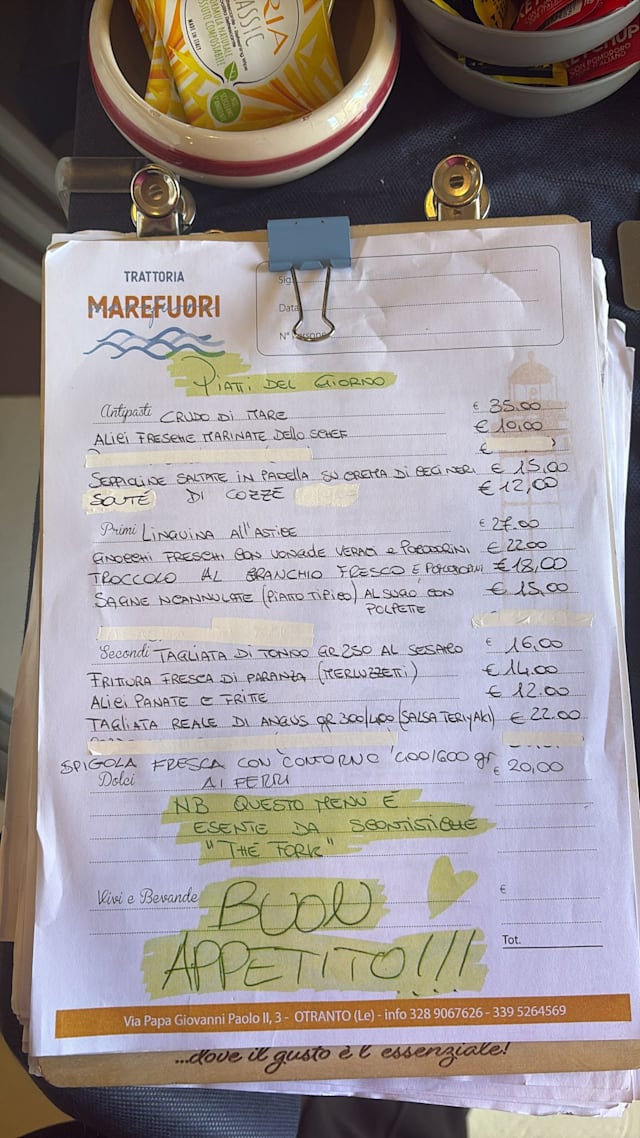 CLASSIC
MADE IN ITALY
KETCHUP
CON POMODORO
ITALIANO
TRATTORIA
MAREFUORI
Sig.
Data
N° Persone
PIATTI DEL GIORNO
Antipasti CRUDO DI MARE € 35.00
ALICI FRESCHE MARINATE DELLO SCHEF € 10,00
€
SEPPIOLINE SALTATE IN PADELLA SU CREMA DI CECI NERI € 15,00
SOUTÉ DI COZZE € 12,00
Primi LINGUINA ALL'ASTICE € 27.00
GNOCCHI FRESCHI CON VONGOLE VERACI E POMODORINI € 22.00
TROCCOLO AL GRANCHIO FRESCO E POMODORINI € 18,00
SAGNE NCANNULATE (PIATTO TIPICO) AL SUGO CON € 15,00
POLPETTE
Secondi TAGLIATA DI TONNO GR 250 AL SESAMO € 16,00
FRITTURA FRESCA DI PARANZA (MERLUZZETTI) € 14.00
ALICI PANATE E FRITTE € 12.00
TAGLIATA REALE DI ANGUS GR 300/400 (SALSA TERIYAKI) € 22.00
SPIGOLA FRESCA CON CONTORNO 400/600 gr € 20,00
Dolci AI FERRI
NB QUESTO MENÙ È
ESENTE DA SCONTISTICHE
"THE FORK"
Vini e Bevande BUON €
APPETITO!!!
Tot.
Via Papa Giovanni Paolo II, 3 - OTRANTO (Le) - info 328 9067626 - 339 5264569
...dove il gusto è l' essenziale!